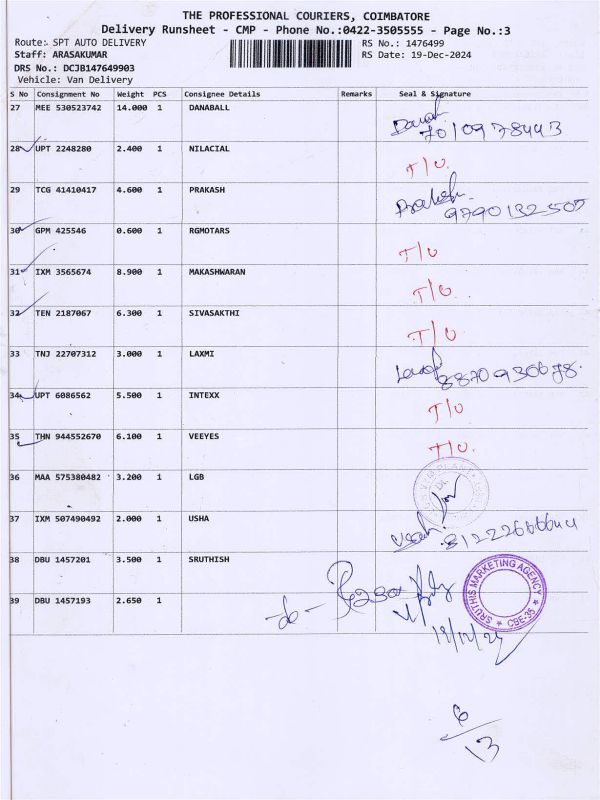 THE PROFESSIONAL COURIERS, COIMBATORE
Delivery Runsheet - CMP - Phone No.:0422-3505555 - Page No.:3
Route: SPT AUTO DELIVERY RS No.: 1476499
Staff: ARASAKUMAR RS Date: 19-Dec-2024
DRS No.: DCJB147649903
Vehicle: Van Delivery
S No Consignment No Weight PCS Consignee Details Remarks Seal & Signature
27 MEE 530523742 14.000 1 DANABALL
28 UPT 2248280 2.400 1 NILACIAL T/U
29 TCG 41410417 4.600 1 PRAKASH Prakash
30 GPM 425546 0.600 1 RGMOTARS T/U
31 IXM 3565674 8.900 1 MAKASHWARAN T/U
32 TEN 2187067 6.300 1 SIVASAKTHI T/U
33 TNJ 22707312 3.000 1 LAXMI
34 UPT 6086562 5.500 1 INTEXX T/U
35 THN 944552670 6.100 1 VEEYES T/U
36 MAA 575380482 3.200 1 LGB
37 IXM 507490492 2.000 1 USHA
38 DBU 1457201 3.500 1 SRUTHISH
SRUTHIS MARKETING AGENCY
★ CBE-35 ★
39 DBU 1457193 2.650 1
6/13